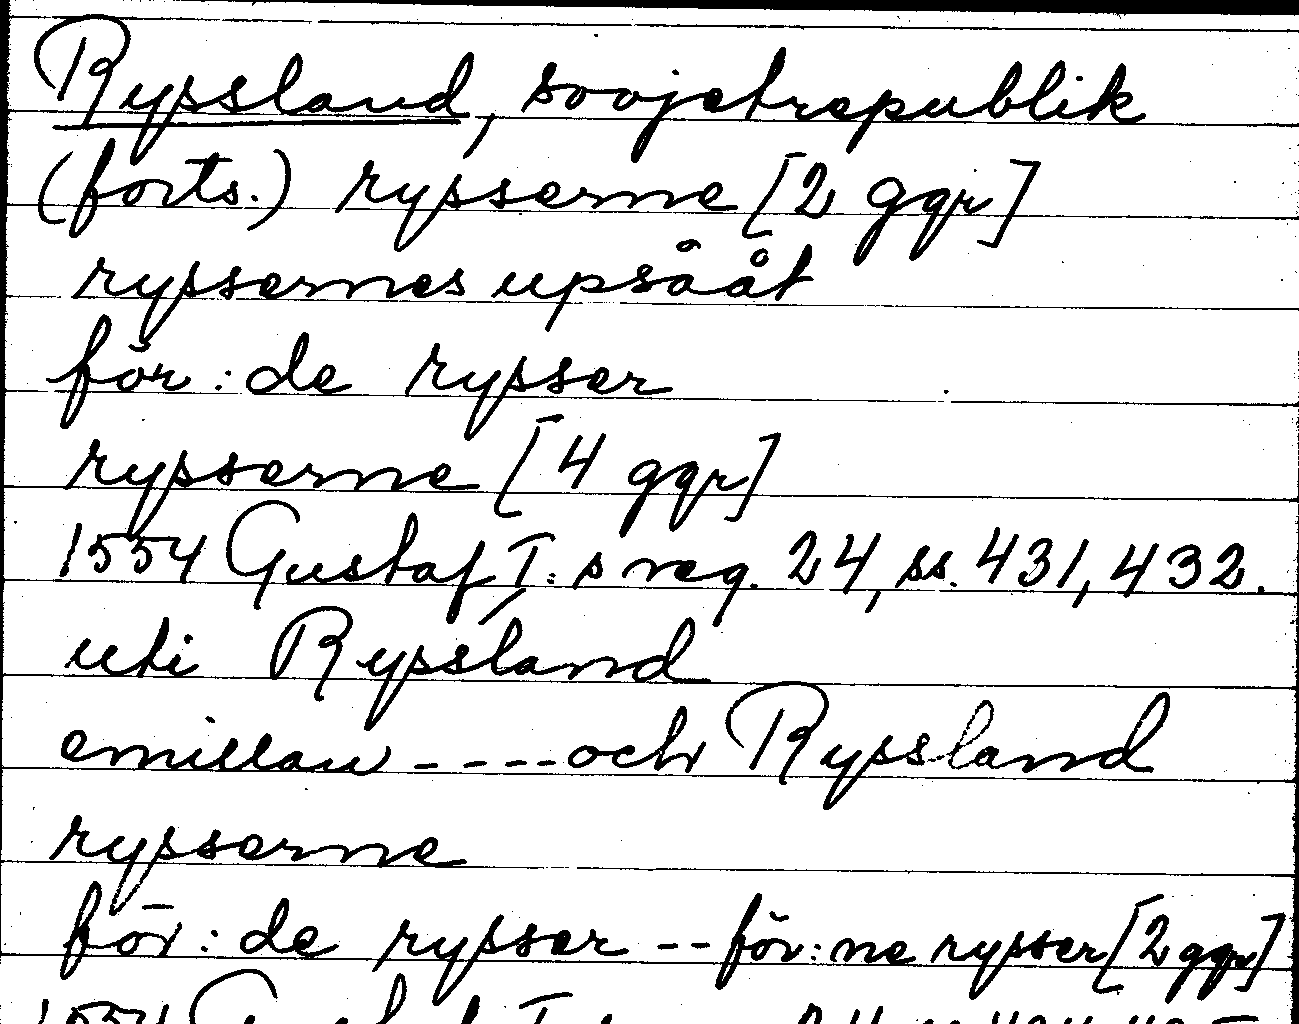 Ryssland, sovjetrepublik
(forts.) rysserne [2 ggr]
ryssernes upsååt
för:de rysser
rysserne [4 ggr]
1554 Gustaf I:s reg. 24, ss. 431, 432.
uti Ryssland
emillan ---- och Ryssland
rysserne
för:de rysser -- för:ne rysser [2 ggr]
1554 Gustaf I:s